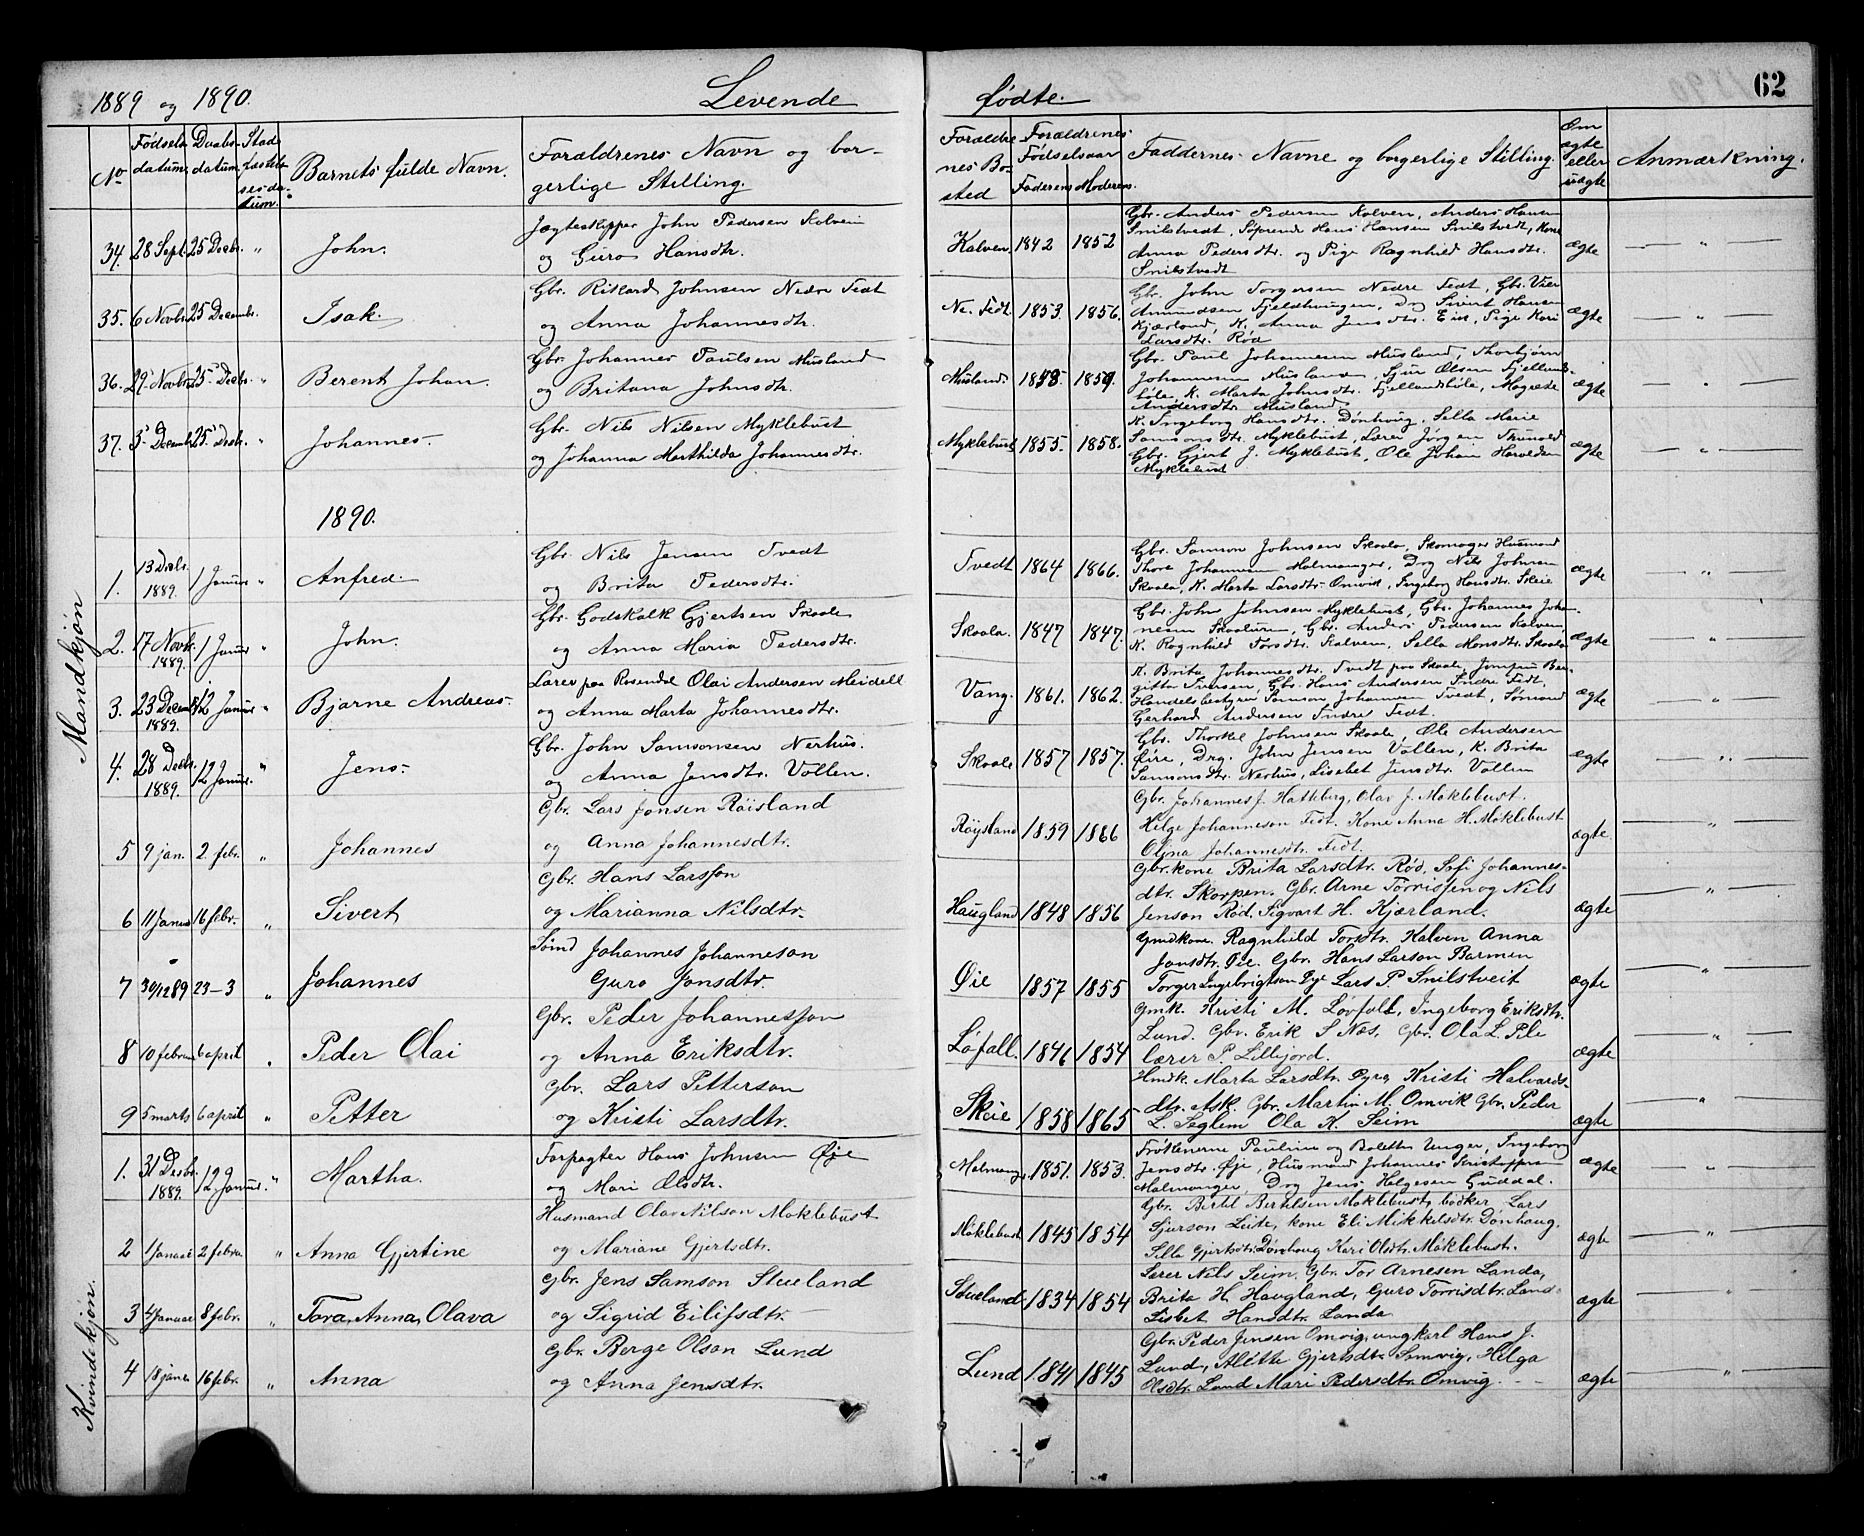 1889 og 1890. Levende fødte. 62
No Fødsels datum. Daabs datum. Stadfæstelsesdatum. Barnets fulde Navn. Forældrenes Navn og borgerlige Stilling. Forældrenes Bosted Forældrenes Fødselsaar Faderens Moderens. Faddernes Navne og borgerlige Stilling. Om ægte eller uægte Anmærkning.
Mandkjøn
34. 28 Sept. 25 Decbr. " John. Jægteskipper John Pedersen Kalven
og Guro Hansdtr. Kalven. 1842 1852 ægte — " —
Gbr. Anders Pedersen Kalven, Anders Hansen
Snilstvedt, Söfrende Hans Hansen Snilstvedt, Kone
Anna Pedersdtr. og Pige Ragnhild Hansdtr.
Snilstvedt
35. 6 Novbr. 25 Decembr. Isak. Gbr. Rikard Johnsen Nedre Tedt
og Anna Johannesdtr. Ne. Tedt. 1853. 1856. ægte — " —
Gbr. John Torgersen Nedre Tedt, Gbr.
Amundsen Fjeldhaugen, Drg Sivert Hansen
Kjærland, K. Anna Jensdtr. Eik, Pige Kari
Larsdtr. Röa
36. 29 Novbr. 25 Decbr. " Berent Johan. Gbr. Johannes Paulsen Musland
og Britana Johnsdtr. Musland. 1859. ægte — " —
Gbr. Paul Johannesen Musland, Thorbjörn
Johannesen Musland, Sjur Olsen Fjellands-
böle, K. Marta Johnsdtr. Fjellandsböle, Magrete
Andersdtr. Musland
37. 3 Decembr. 25 Decbr. " Johannes. Gbr. Nils Nilsen Myklebust
og Johanna Marthilda Johannesdtr. Myklebust 1855. 1858. ægte — " —
K. Ingeborg Hansdtr. Dönhoug, Sella Marie
Samsonsdtr. Myklebust, Lærer Jörgen Thunold
Gbr. Gjert J. Myklebust, Ole Johan Haraldsen
Myklebust
1890.
1. 13 Decbr. 1889. 1 Januar " Anfred. Gbr. Nils Jensen Tvedt
og Brita Pedersdtr. Tvedt 1864 1866. ægte — " —
Gbr. Samson Johnsen Skaala, Skomager Husmand
Thore Johannesen Malmanger, Drg Nils Johnsen
Skaala, K. Marta Larsdtr. Omvik, Ingeborg Hansdtr. Skeie
2. 17 Novbr. 1889. 1 Januar " John. Gbr. Godskalk Gjertsen Skaale
og Anna Maria Pedersdtr. Skaala. 1847 1847. ægte — " —
Gbr. John Johnsen Myklebust, Gbr. Johannes Johan-
nesen Skaaluren, Gbr. Anders Pedersen Kalven
K. Ragnhild Torsdtr. Kalven, Sella Monsdtr. Skaala
3. 23 Decembr. 1889. 12 Januar " Bjarne Andreas. Lærer paa Rosendal Olai Andersen Meidell
og Anna Marta Johannesdtr. Vang. 1861. 1862. ægte — " —
K. Brita Johannesdtr. Tvedt paa Skaale, Jomfru Ber-
gitta Iversen, Gbr. Hans Andersen Indre Tedt,
Handelsbestyrer Samson Johannesen Tvedt, Sömand
Gerhard Andersen Indre Tedt.
4. 28 Decbr. 1889. 12 Januar. " Jens. Gbr. John Samsonsen Nerhus.
og Anna Jensdtr. Vollen. Skaale 1857 1857. ægte — " —
Gbr. Thorkel Johnsen Skaale, Ole Andersen
Öire, Drg. John Jensen Vollen, K. Brita
Samsonsdtr. Nerhus, Lisebet Jensdtr. Vollen
5 9 jan. 2. febr. " Johannes Gbr. Lars Jonsen Röisland
og Anna Johannesdtr. Röysland 1859 1866 ægte — " —
Gbr. Johannes J. Hatteberg, Olav J. Möklebust.
Helge Johanneson Tedt. Kone Anna H. Möklebust
Olina Johannesdtr. Tedt.
6 11 Januar 16 febr. " Sivert Gbr. Hans Larsson
og Marianna Nilsdtr. Haugland 1848 1856 ægte — " —
Gbr.kone Brita Larsdtr. Röd, Sofi Johannes-
dtr. Skorpen. Gbr. Arne Torrissen og Nils
Jenson Röd, Sigvart H. Kjærland.
7 30/12 89 23–3 " Johannes Sömd Johannes Johanneson
Guro Jonsdtr. Öie 1857 1855 ægte — " —
Gmdkone. Ragnhild Torsdtr. Kalven Anna
Jonsdtr. Öie. Gbr. Hans Larson Barmen
Torger Ingebrigtson Öye Lars P. Snilstveit
8 10 februar 6 april " Peder Olai Gbr. Peder Johannesson
og Anna Eriksdtr. Löfall. 1846 1854 ægte — " —
Gmk. Kristi M. Lövfall, Ingeborg Eriksdtr.
Lund. Gbr. Erik S Næs, Gbr. Ola L. Pile
lærer P. Lillejord.
9 5 marts 6 april " Petter Gbr. Lars Petterson
og Kristi Larsdtr. Skeie 1858 1865 ægte — " —
Hmdk. Marta Larsdtr. Öyre, Kristi Halvards-
dtr. Ask. Gbr. Martin M. Omvik Gbr. Peder
L. Seglem Ola K. Seim
Kvindekjøn.
1. 31 Decbr. 1889. 12 Januar. " Martha. Forpagter Hans Johnsen Öje
og Mari Olsdtr. Malmang. 1851. 1853. ægte — " —
Frökenerne Pauline og Bolette Unger, Ingeborg
Jensdtr. Öje, Husmand Johannes Kristoffersen
Malmanger, Drg Jens Helgesen Guddal.
2 1 Januar 2 februar " Anna Gjertine Husmand Olav Nilson Möklebust
og Mariane Gjertsdtr. Möklebust 1845 1854 ægte — " —
Gbr. Bertel Bertelsen Möklebust, bödker Lars
Sjurson Leite, kone Eli Mikkelsdtr. Dönhaug,
Sella Gjertsdtr. Dönhaug Kari Olsdtr. Möklebust.
3 4 Januar 8 febr. " Tora, Anna, Olava Gbr. Jens Samson Stueland
og Sigrid Eilifsdtr. Stueland 1834 1854 ægte — " —
Lærer Nils Seim. Gbr. Tor Arnesen Landa,
Brita H. Haugland, Guro Torrisdtr. Landa
Lisbet Hansdtr. Landa
4 18 janr. 16 febr. " Anna Gbr. Berge Olson Lund
og Anna Jensdtr. Lund 1841 1845 ægte — " —
Gbr. Peder Jensen Omvig, ungkarl Hans J.
Lund, Alette Gjertsdtr. Omvig, Helga
Olsdtr. Lund Mari Pedersdtr. Omvig.